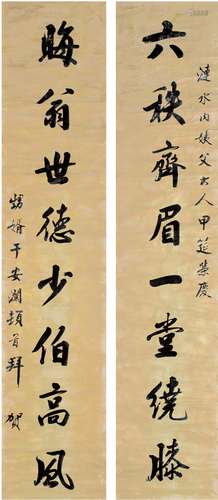 六秩齊眉一堂繞膝
漣水內姨父大人甲筵榮慶
晦翁世德少伯高風
甥婿于安瀾頓首拜賀